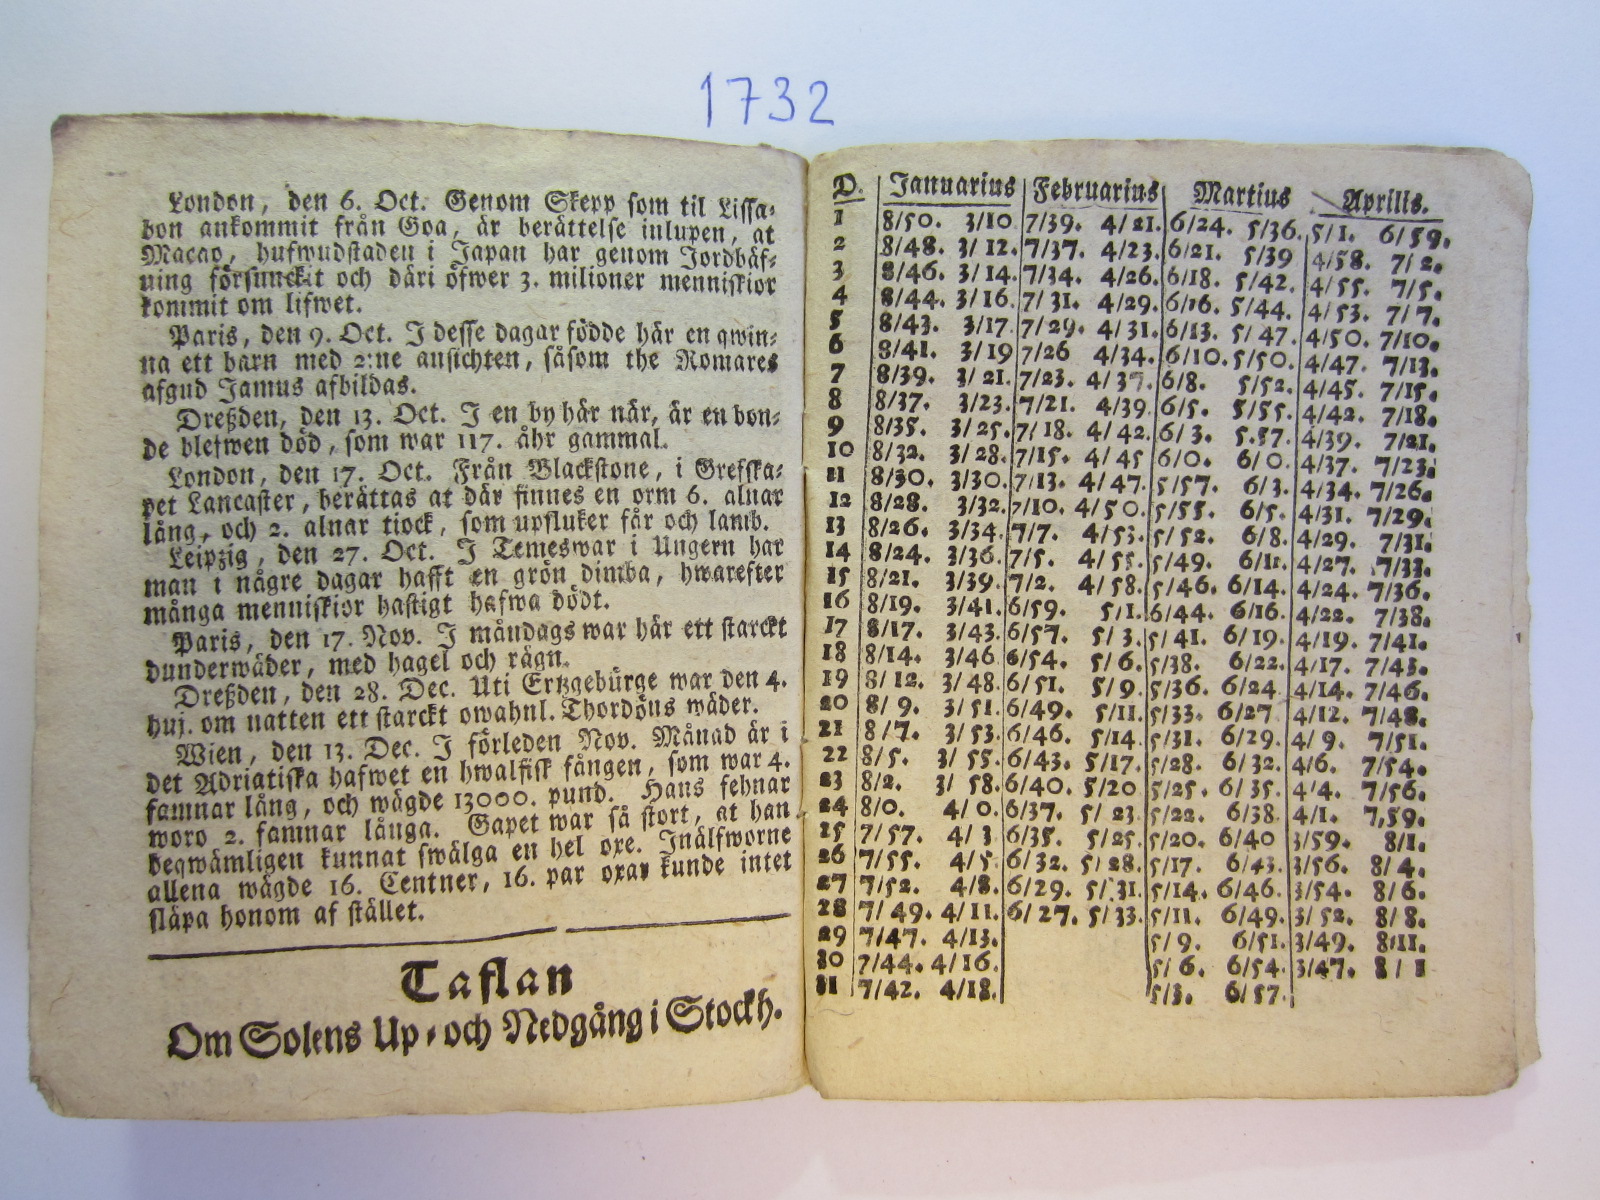 1732
London, den 6. Oct. Genom Skepp som til Lissa-
bon ankommit från Goa, är berättelse inlupen, at
Macao, hufwudstaden i Japan har genom Jordbäf-
ning försunckit och däri öfwer 3. milioner menniskior
kommit om lifwet.
Paris, den 9. Oct. I desse dagar födde här en qwin-
na ett barn med 2:ne ansichten, såsom the Romares
afgud Jamus afbildas.
Dreßden, den 13. Oct. I en by här när, är en bon-
de blefwen död, som war 117. åhr gammal.
London, den 17. Oct. Från Blackstone, i Grefska-
pet Lancaster, berättas at där finnes en orm 6. alnar
lång, och 2. alnar tiock, som upsluker får och lamb.
Leipzig, den 27. Oct. I Temeswar i Ungern har
man i någre dagar hafft en grön dimba, hwarefter
många menniskior hastigt hafwa dödt.
Paris, den 17. Nov. I måndags war här ett starckt
dunderwäder, med hagel och rägn.
Dreßden, den 28. Dec. Uti Ertzgebürge war den 4.
huj. om natten ett starckt owahnl. Thordöns wäder.
Wien, den 13. Dec. I förleden Nov. Månad är i
det Adriatiska hafwet en hwalfisk fången, som war 4.
famnar lång, och wägde 13000. pund. Hans fehnar
woro 2. famnar långa. Gapet war så stort, at han
beqwämligen kunnat swälga en hel oxe. Inälfworne
allena wägde 16. Centner, 16. par oxar kunde intet
släpa honom af stället.
Taflan
Om Solens Up- och Nedgång i Stockh.
D. Januarius Februarius Martius Aprilis.
1 8/50. 3/10 7/39. 4/21. 6/24. 5/36. 5/1. 6/59.
2 8/48. 3/12. 7/37. 4/23. 6/21. 5/39 4/58. 7/2.
3 8/46. 3/14. 7/34. 4/26. 6/18. 5/42. 4/55. 7/5.
4 8/44. 3/16. 7/31. 4/29. 6/16. 5/44. 4/53. 7/7.
5 8/43. 3/17. 7/29. 4/31. 6/13. 5/47. 4/50. 7/10.
6 8/41. 3/19 7/26 4/34. 6/10. 5/50. 4/47. 7/13.
7 8/39. 3/21. 7/23. 4/37. 6/8. 5/52. 4/45. 7/15.
8 8/37. 3/23. 7/21. 4/39. 6/5. 5/55. 4/42. 7/18.
9 8/35. 3/25. 7/18. 4/42. 6/3. 5.57. 4/39. 7/21.
10 8/32. 3/28. 7/15. 4/45 6/0. 6/0. 4/37. 7/23.
11 8/30. 3/30. 7/13. 4/47. 5/57. 6/3. 4/34. 7/26.
12 8/28. 3/32. 7/10. 4/50. 5/55. 6/5. 4/31. 7/29.
13 8/26. 3/34. 7/7. 4/53. 5/52. 6/8. 4/29. 7/31.
14 8/24. 3/36. 7/5. 4/55. 5/49. 6/11. 4/27. 7/33.
15 8/21. 3/39. 7/2. 4/58. 5/46. 6/14. 4/24. 7/36.
16 8/19. 3/41. 6/59. 5/1. 6/44. 6/16. 4/22. 7/38.
17 8/17. 3/43. 6/57. 5/3. 5/41. 6/19. 4/19. 7/41.
18 8/14. 3/46 6/54. 5/6. 5/38. 6/22. 4/17. 7/43.
19 8/12. 3/48. 6/51. 5/9. 5/36. 6/24 4/14. 7/46.
20 8/9. 3/51. 6/49. 5/11. 5/33. 6/27 4/12. 7/48.
21 8/7. 3/53. 6/46. 5/14 5/31. 6/29. 4/9. 7/51.
22 8/5. 3/55. 6/43. 5/17. 5/28. 6/32. 4/6. 7/54.
23 8/2. 3/58. 6/40. 5/20 5/25. 6/35. 4/4. 7/56.
24 8/0. 4/0. 6/37. 5/23 5/22. 6/38 4/1. 7,59.
25 7/57. 4/3 6/35. 5/25. 5/20. 6/40 3/59. 8/1.
26 7/55. 4/5 6/32. 5/28. 5/17. 6/43. 3/56. 8/4.
27 7/52. 4/8. 6/29. 5/31. 5/14. 6/46. 3/54. 8/6.
28 7/49. 4/11. 6/27. 5/33. 5/11. 6/49. 3/52. 8/8.
29 7/47. 4/13. 5/9. 6/51. 3/49. 8/11.
30 7/44. 4/16. 5/6. 6/54. 3/47.
31 7/42. 4/18. 5/3. 6/57.